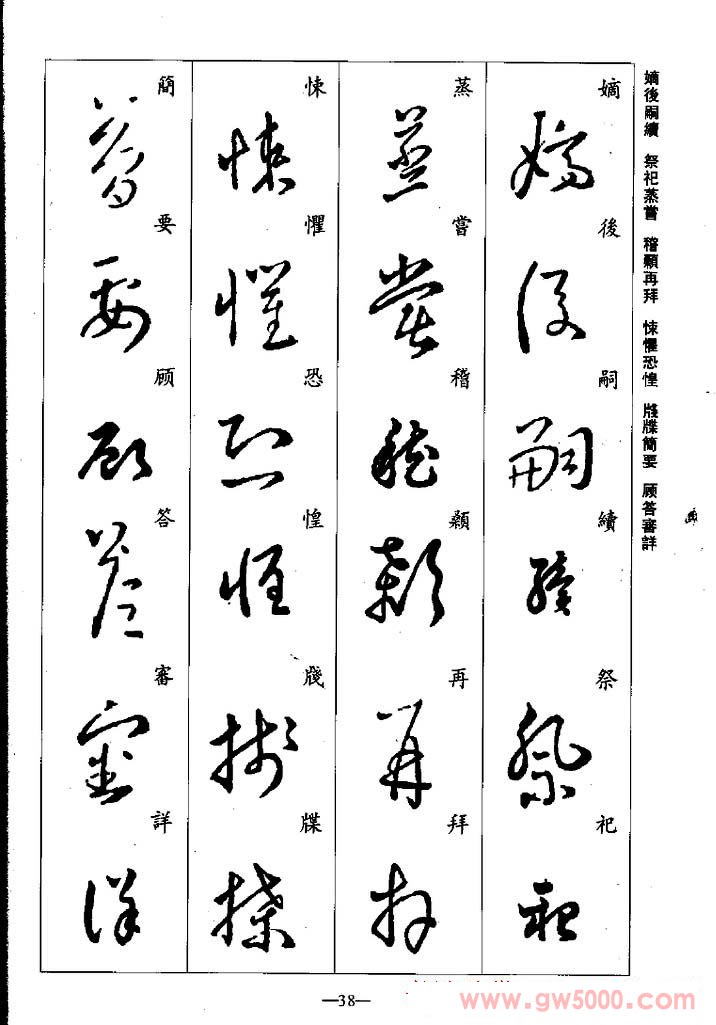 嫡後嗣續 祭祀蒸嘗 稽顙再拜 悚懼恐惶 牋牒簡要 顾答審詳
嫡後嗣續祭祀
蒸嘗稽顙再拜
悚懼恐惶牋牒
簡要顾答審詳
—38—
www.gw5000.com